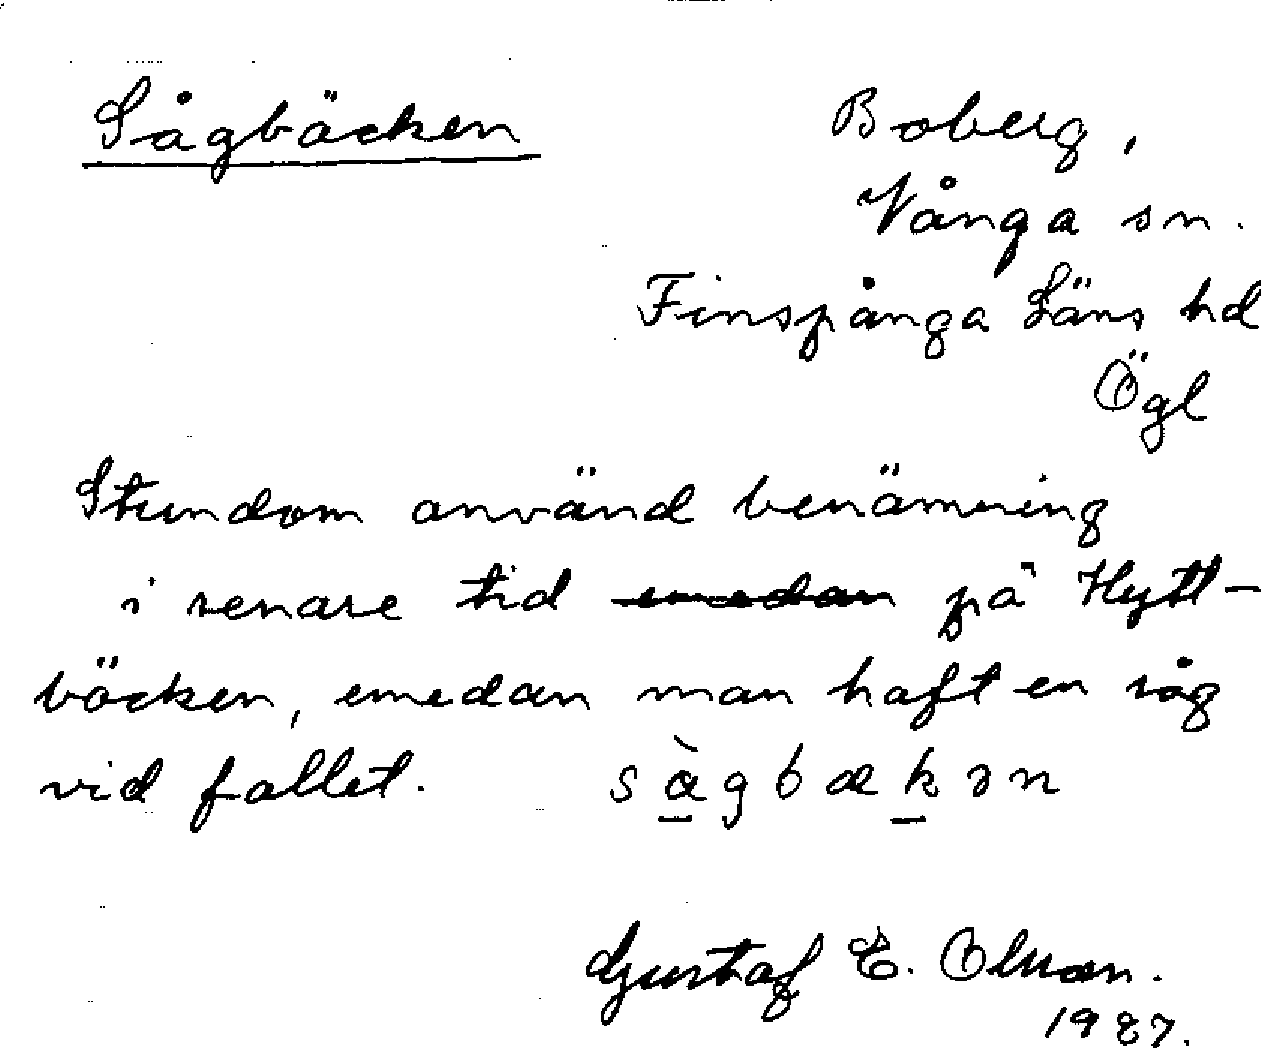 Sågbäcken
Boberg,
Vånga sn.
Finspånga Läns hd
Ögl
Stundom använd benämning
i senare tid ~~emedan~~ på Hytt-
bäcken, emedan man haft en såg
vid fallet. sàgbækən
Gustaf E. Olsson.
1987.